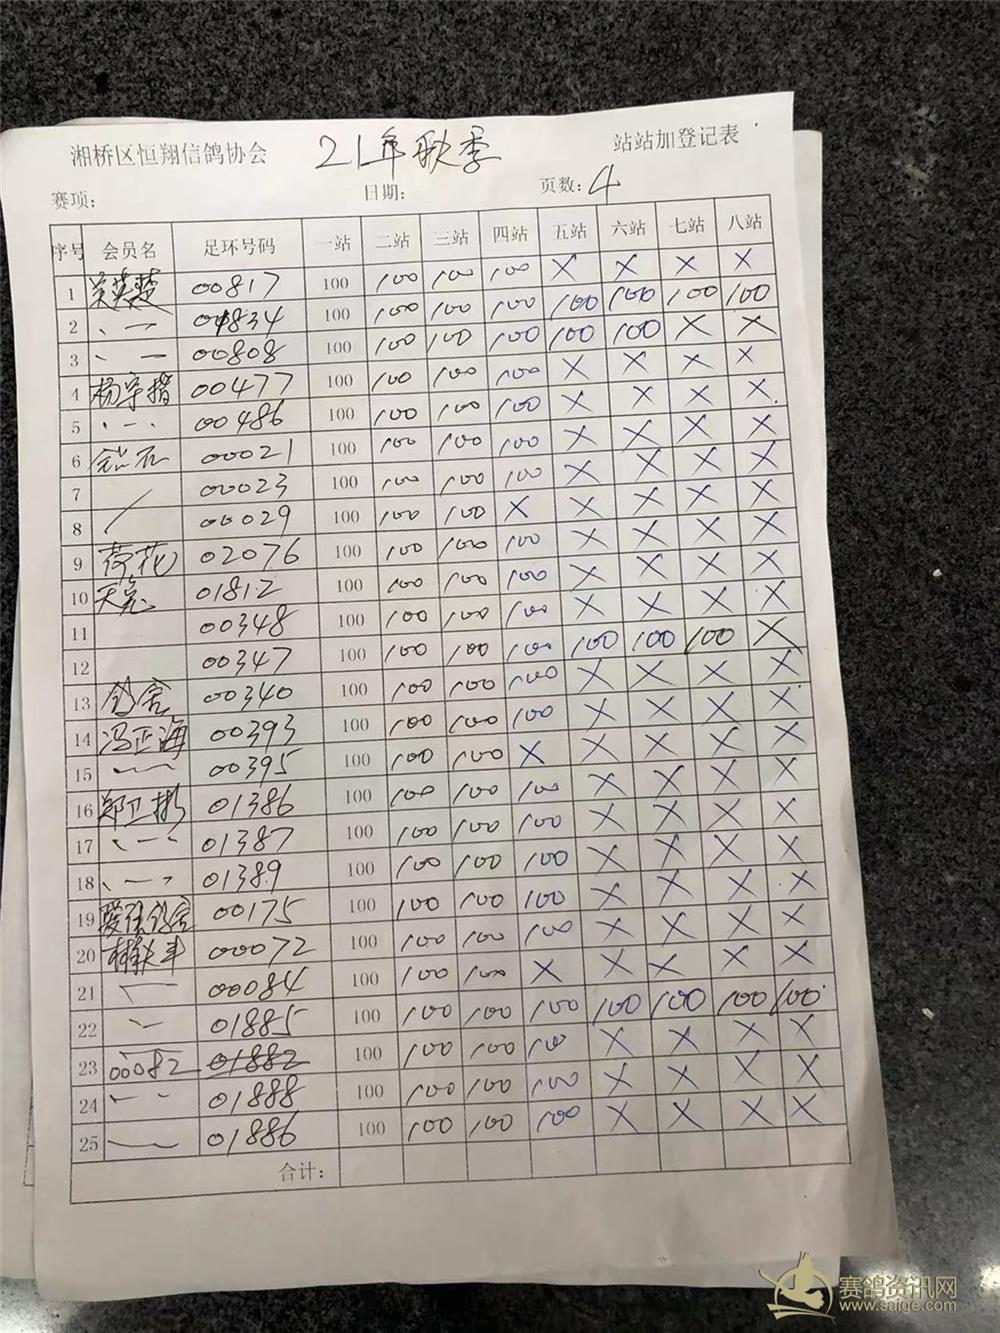 湘桥区恒翔信鸽协会 21年秋季 站站加登记表
赛项: 日期: 页数: 4
序号 会员名 足环号码 一站 二站 三站 四站 五站 六站 七站 八站
1 吴英楚 00817 100 100 100 100 X X X X
2 、一 、 01834 100 100 100 100 100 100 100 100
3 、 一 00808 100 100 100 100 100 100 X X
4 00477 100 100 100 100 X X X X
5 、一、 00486 100 100 100 100 X X X X
6 钻石 00021 100 100 100 100 X X X X
7 00023 100 100 100 100 X X X X
8 / 00029 100 100 100 X X X X X
9 荷花 02076 100 100 100 100 X X X X
10 天宠 01812 100 100 100 100 X X X X
11 00348 100 100 100 100 X X X X
12 00347 100 100 100 100 100 100 100 X
13 鸽舍 00340 100 100 100 100 X X X X
14 冯正海 00393 100 100 100 100 X X X X
15 00395 100 100 100 X X X X X
16 郑卫彬 01386 100 100 100 100 X X X X
17 、一、 01387 100 100 100 100 X X X X
18 、一、 01389 100 100 100 100 X X X X
19 鸽舍 00175 100 100 100 100 X X X X
20 00072 100 100 100 100 X X X X
21 00084 100 100 100 X X X X X
22 01885 100 100 100 100 100 100 100 100
23 00082 01882 100 100 100 100 X X X X
24 01888 100 100 100 100 X X X X
25 01886 100 100 100 100 X X X X
合计:
赛鸽资讯网
www.saige.com